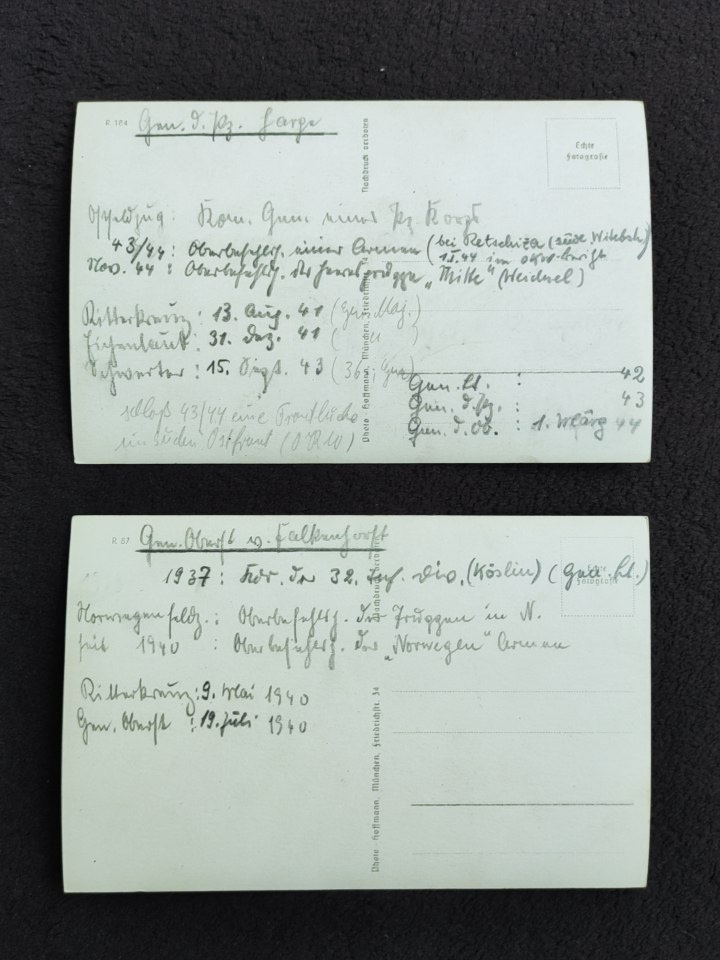 R 184
Gen. d. Pz. Harpe
Nachdruck verboten
Echte
Fotografie
Ostfeldzug: Kom. Gen. eines Pz. Korps
43/44: Oberbefehlsh. einer Armee (bei Retschiza (südl. Witebsk)
1.I.44 im OKW-Bericht
Nov. 44: Oberbefehlsh. der Heeresgruppe „Mitte" (Weichsel)
Ritterkreuz: 13. Aug. 41 (Gen. Maj.)
Eichenlaub: 31. Dez. 41 ( " )
Schwerter: 15. Sept. 43 (36.;
Gen. Lt. : 42
Gen. d. Pz. : 43
Gen. d. Ob. : 1. März 44
schloß 43/44 eine Frontlücke
im Süden Ostfront (OKW)
Photo Hoffmann, München, Friedrichstr. 34
R 87
Gen. Oberst v. Falkenhorst
Nachdruck verboten
Echte
Fotografie
1937: Kdr. der 32. Inf. Div. (Köslin) (Gen. Lt.)
Norwegenfeldz.: Oberbefehlsh. der Truppen in N.
seit 1940 : Oberbefehlsh. der „Norwegen" Armee
Ritterkreuz: 9. Mai 1940
Gen. Oberst : 19. Juli 1940
Photo Hoffmann, München, Friedrichstr. 34